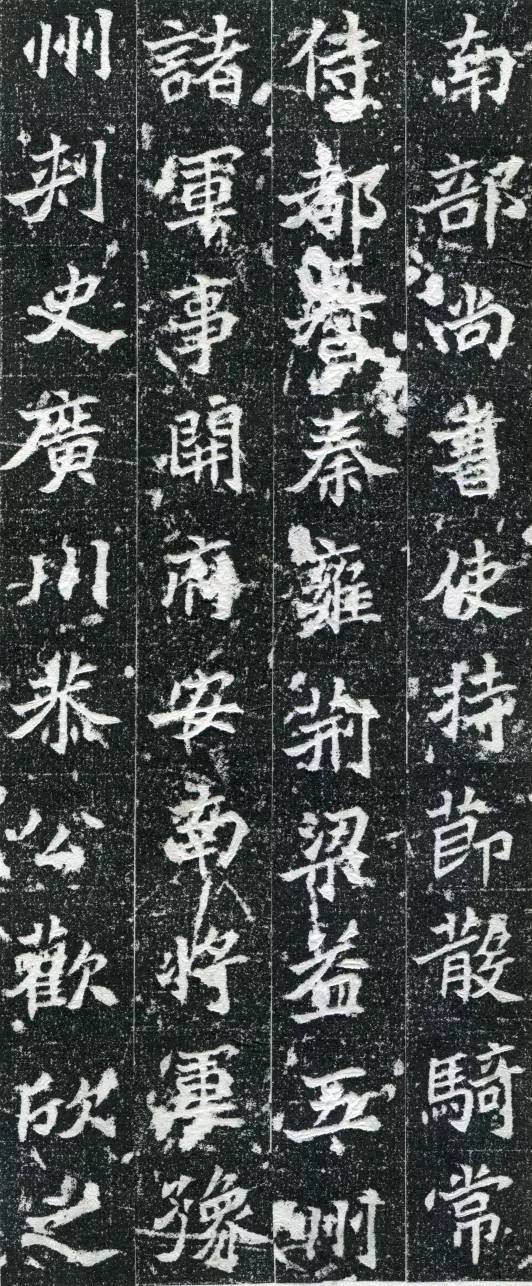 南部尚書使持節散騎常
侍都督秦雍荊梁益五州
諸軍事開府安南將軍豫
州刺史廣川恭公歡欣之